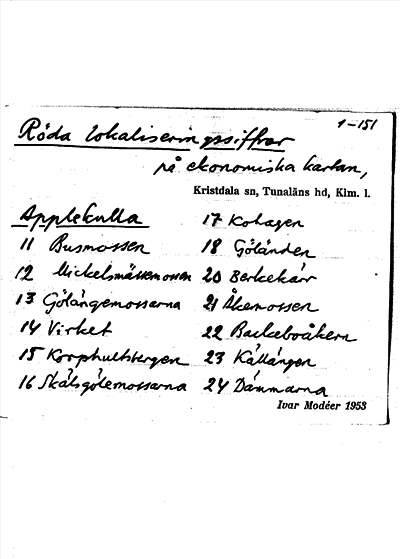 1-151
Röda lokaliseringssiffror
på ekonomiska kartan,
Kristdala sn, Tunaläns hd, Klm. l.
Applekulla
11 Busmossen
12 Mickelsmässemossen
13 Götängemossarna
14 Virket
15 Korphultsbergen
16 Skälsgölemossarna
17 Kohagen
18 Göländen
20 Berkekärr
21 Åkemossen
22 Backeboåkern
23 Källängen
24 Dammarna
Ivar Modéer 1953